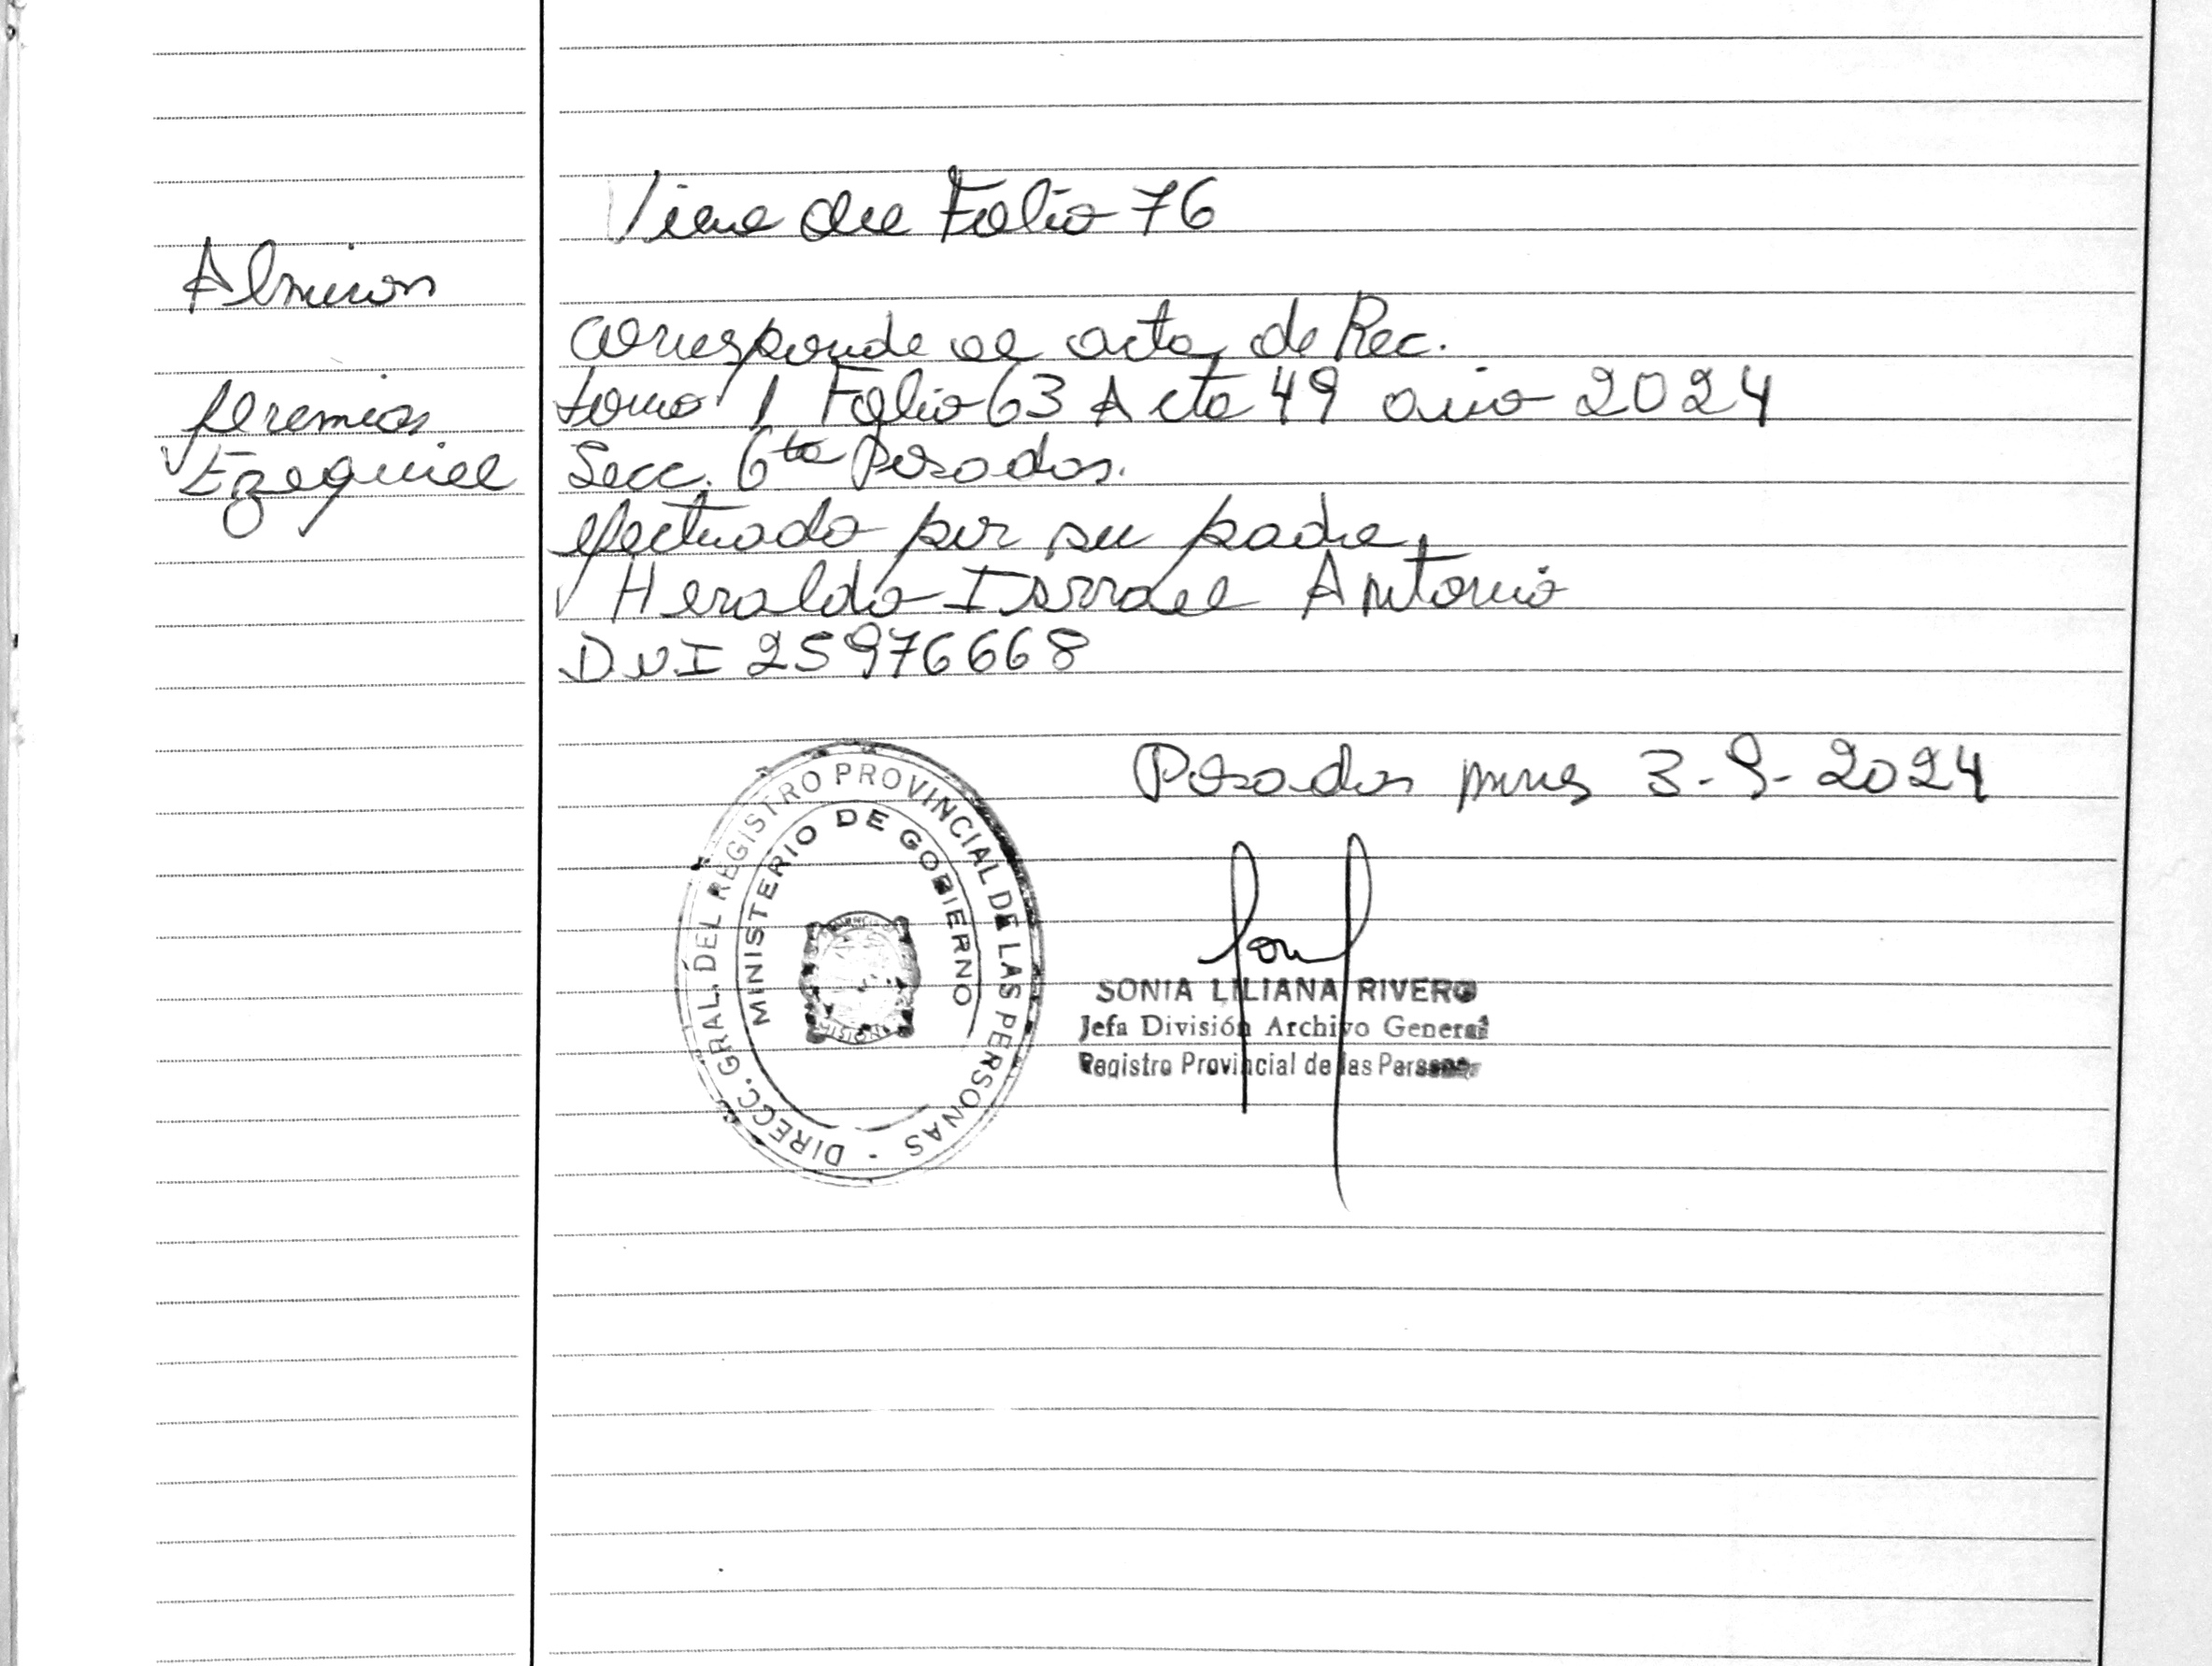 Viene del Folio 76
Almiron
Corresponde al acta de Rec.
Jeremias
tomo 1 Folio 63 Acta 49 año 2024
Ezequiel
Secc. 6ta Posadas.
efectuado por su padre,
Heraldo Isrrael Antonio
DNI 25976668
Posadas mnes 3-9-2024
DIRECC. GRAL. DEL REGISTRO PROVINCIAL DE LAS PERSONAS
MINISTERIO DE GOBIERNO
SONIA LILIANA RIVERO
Jefa División Archivo General
Registro Provincial de las Personas